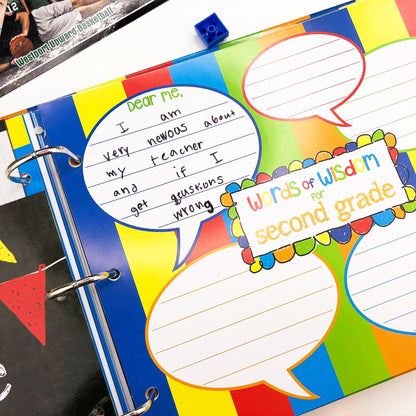 Westport Upward Basketball
Dear Me,
I am
very nervous about
my teacher
and if I
get qeustions
wrong
Words of Wisdom
for
second grade
e